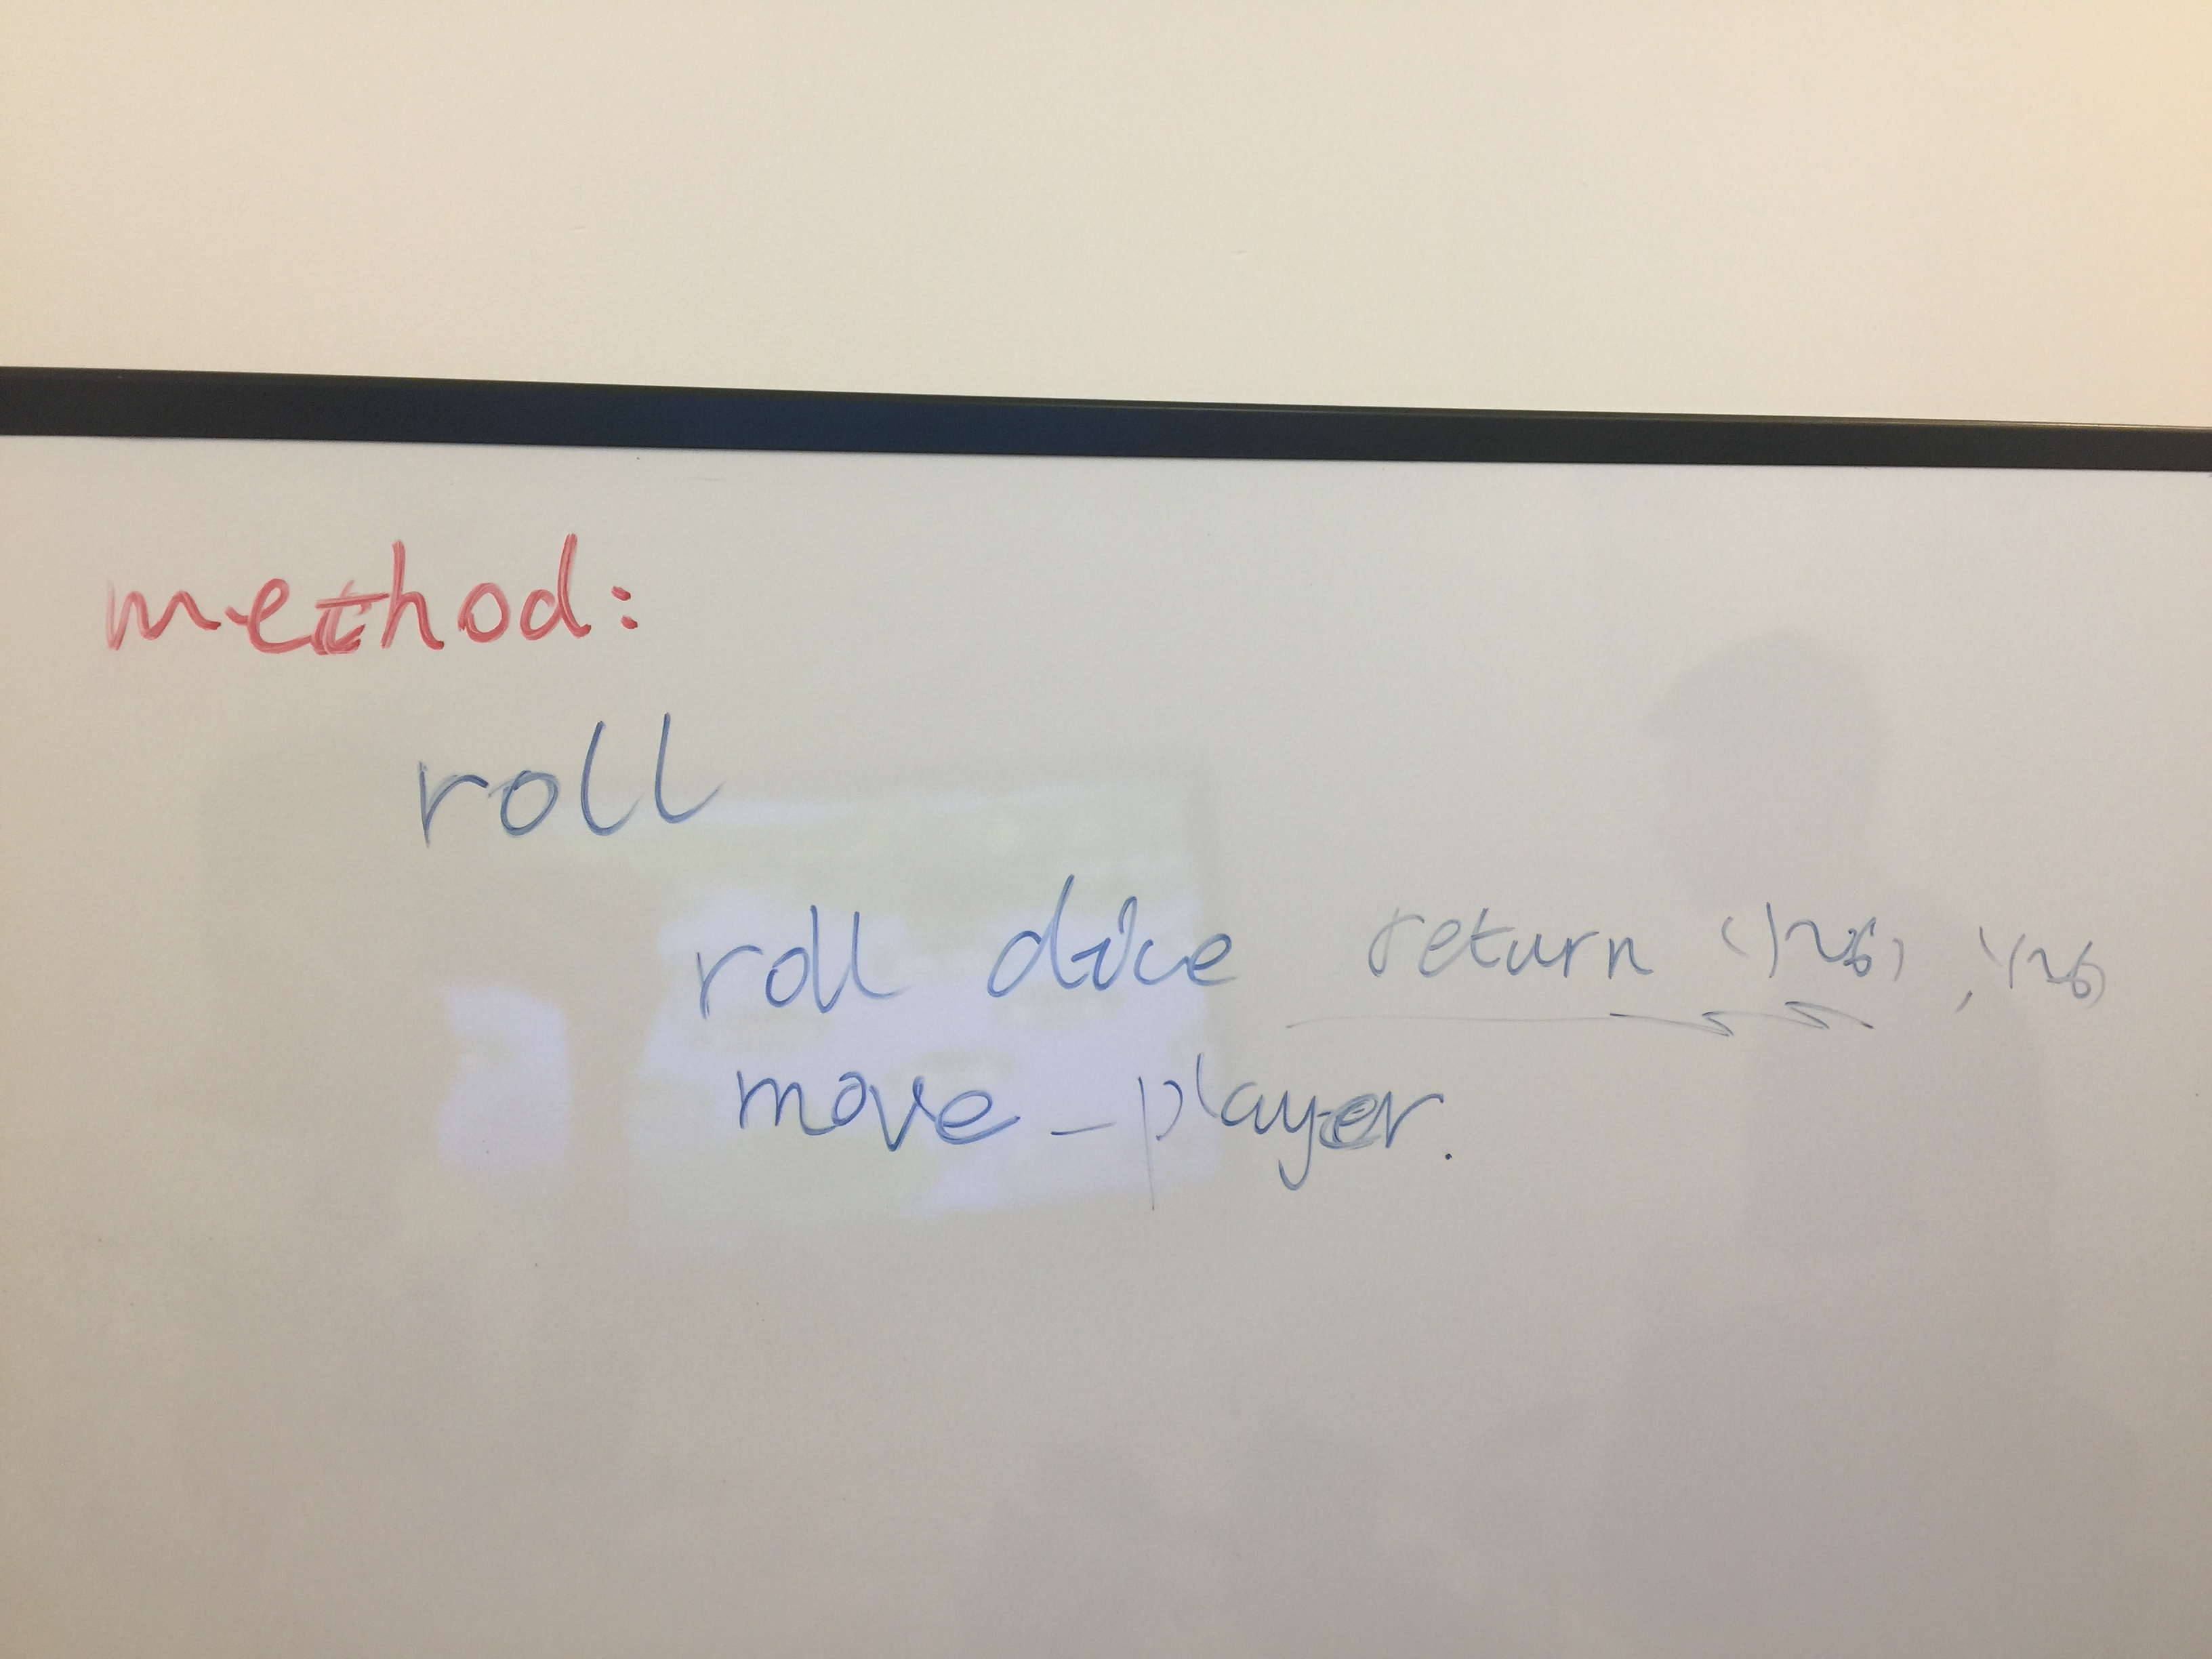 method:
roll
roll dice return (1~6), (1~6)
move_player.